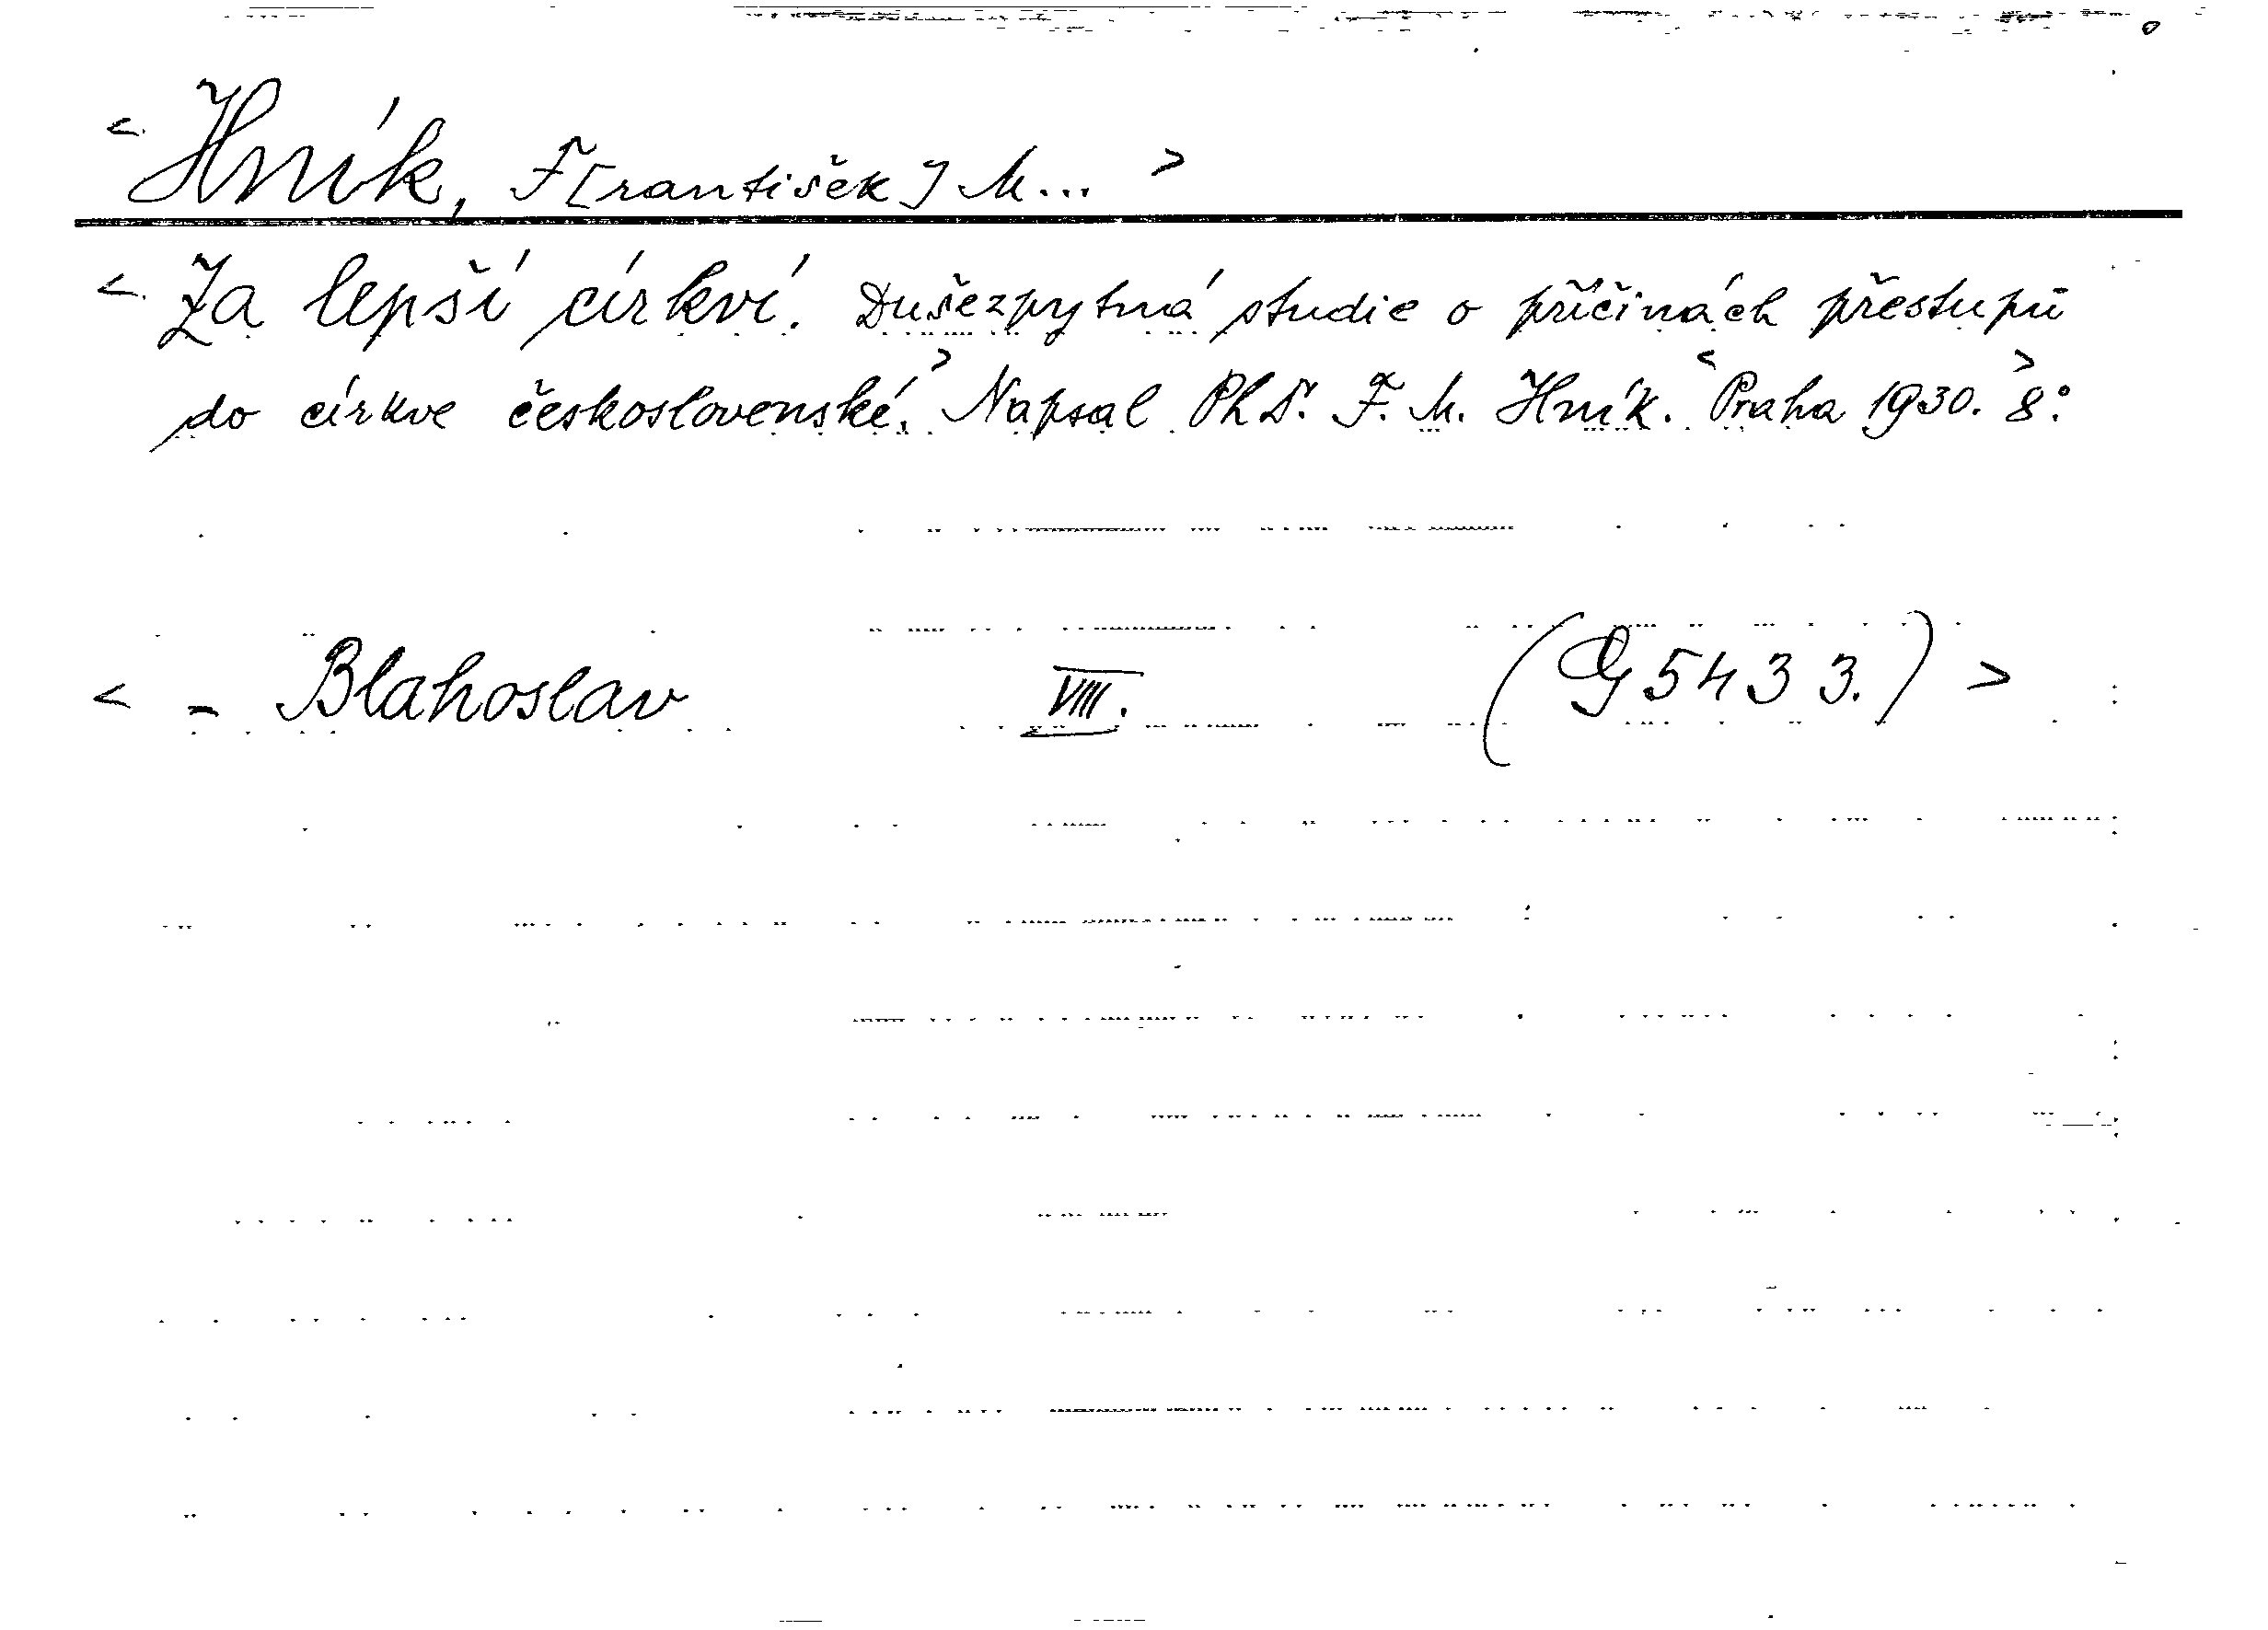 < Hník, F[rantišek] M... >
< Za lepší církví. Dušezpytná studie o příčinách přestupů
do církve československé. > Napsal PhDr. F. M. Hník. < Praha 1930. > 8°.
< - Blahoslav VIII. (G 5433.) >